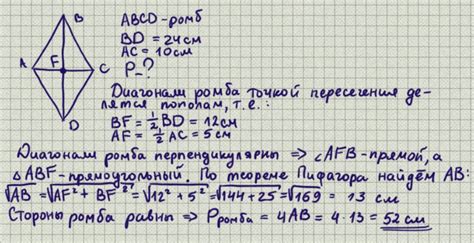 B
A
F
C
D
ABCD-ромб
BD = 24см
AC = 10см
P-?
Диагонали ромба точкой пересечения де-
лятся пополам, т.е.:
BF = 1/2 BD = 12см
AF = 1/2 AC = 5см
Диагонали ромба перпендикулярны ⇒ ∠AFB-прямой, а
△ABF-прямоугольный. По теореме Пифагора найдём AB:
√AB = √AF² + BF² = √12² + 5² = √144 + 25 = √169 = 13 см
Стороны ромба равны ⇒ Pромба = 4AB = 4 · 13 = 52 см